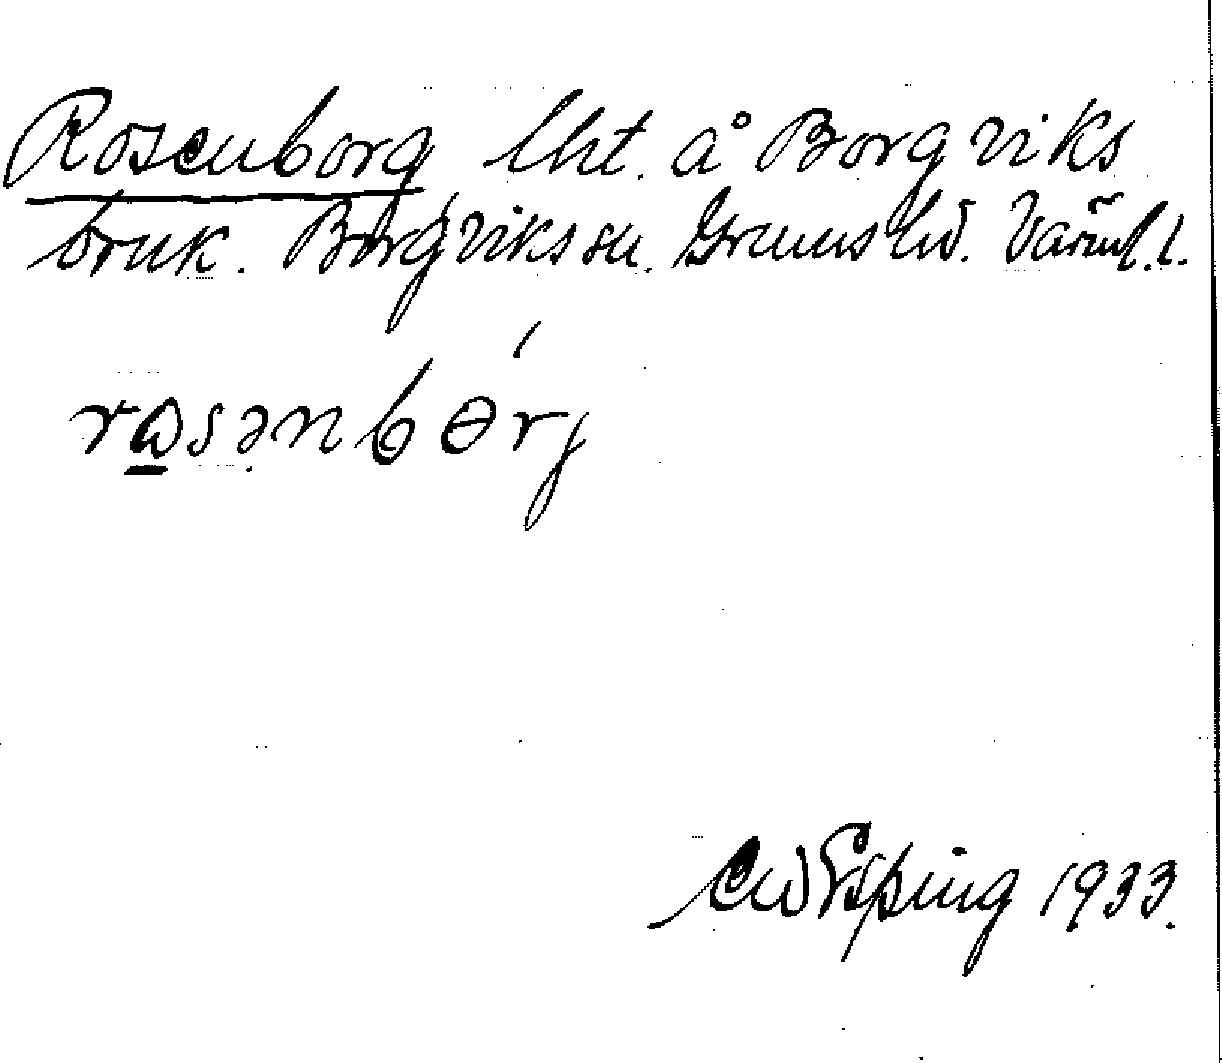 Rosenborg lht. å Borgviks
bruk. Borgviks sn. Grums hd. Värml. l.
rɷsənbɵrj
CW Esping 1933.